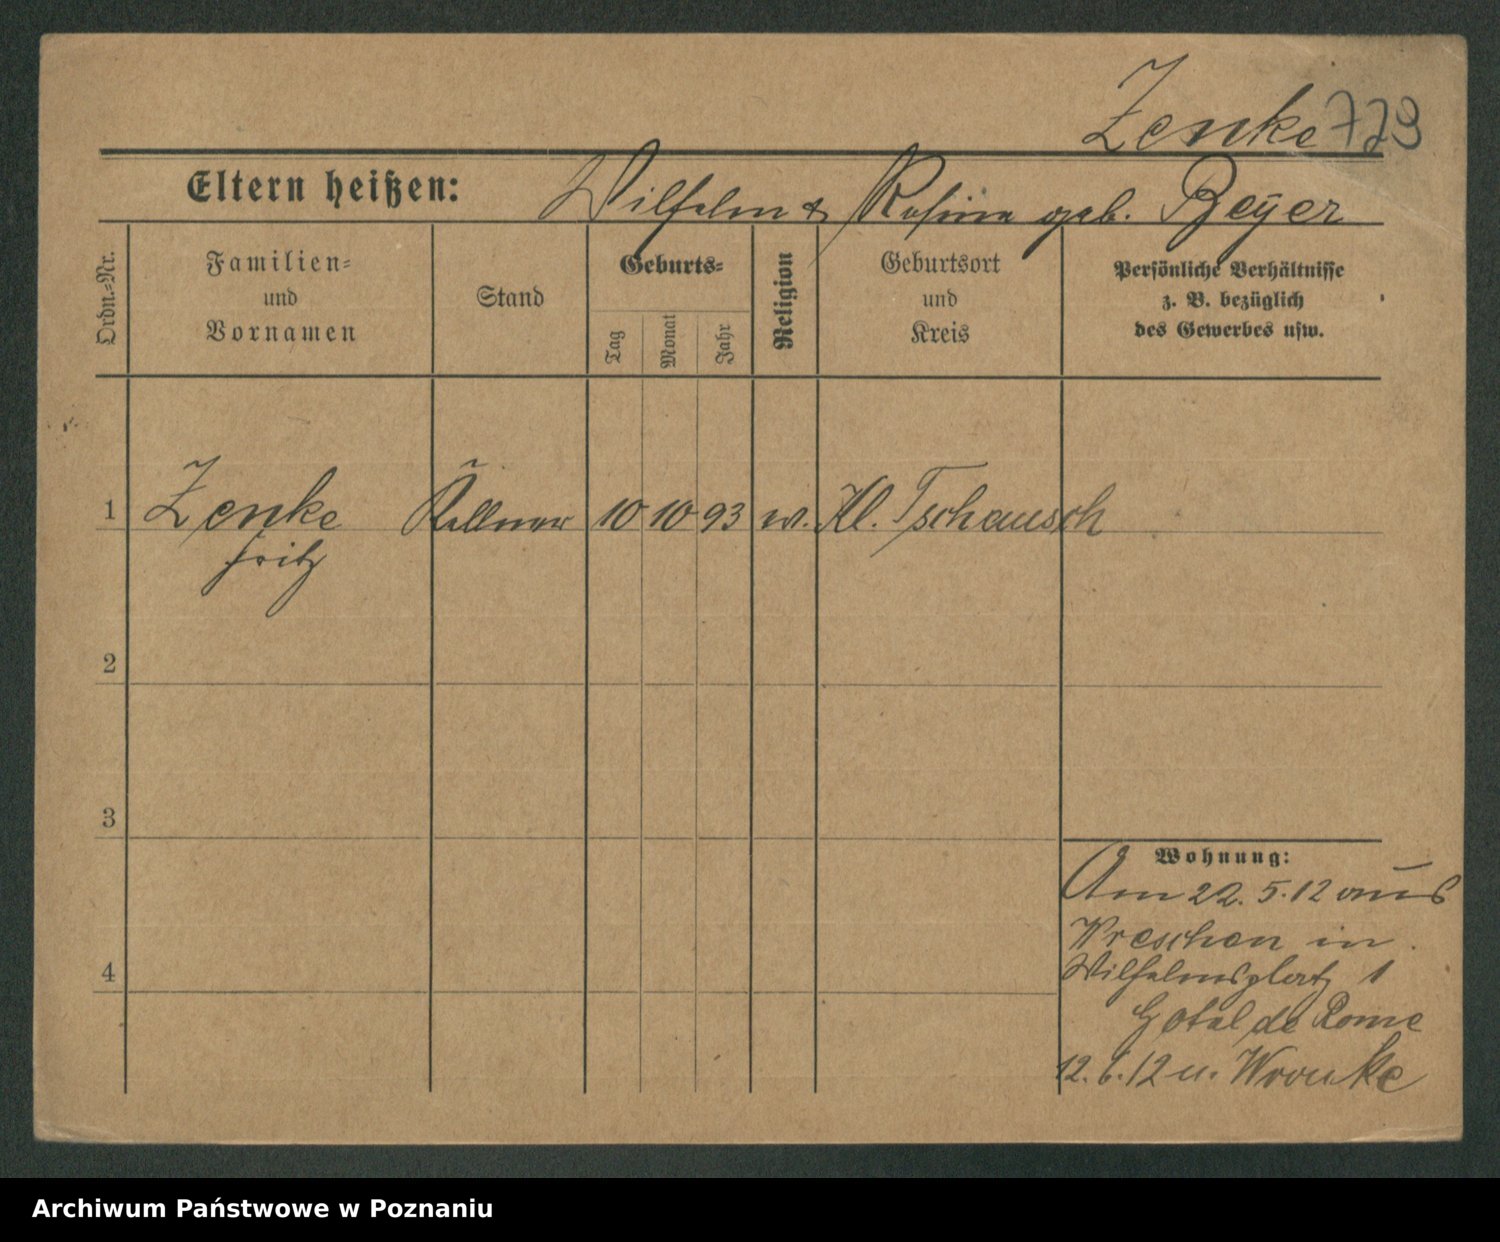 Zenke 729
Eltern heißen: Wilhelm & Rosina geb. Beyer
Ordn.-Nr.
Familien-
und
Vornamen
Stand
Geburts-
Tag
Monat
Jahr
Religion
Geburtsort
und
Kreis
Persönliche Verhältnisse
z. B. bezüglich
des Gewerbes usw.
1 Zenke Kellner 10 10 93 ev. Kl. Tschansch
Fritz
2
3
4
Wohnung:
Am 22.5.12 aus
Wreschen in
Wilhelmsplatz 1
Hotel de Rome
12.6.12 n. Wronke
Archiwum Państwowe w Poznaniu